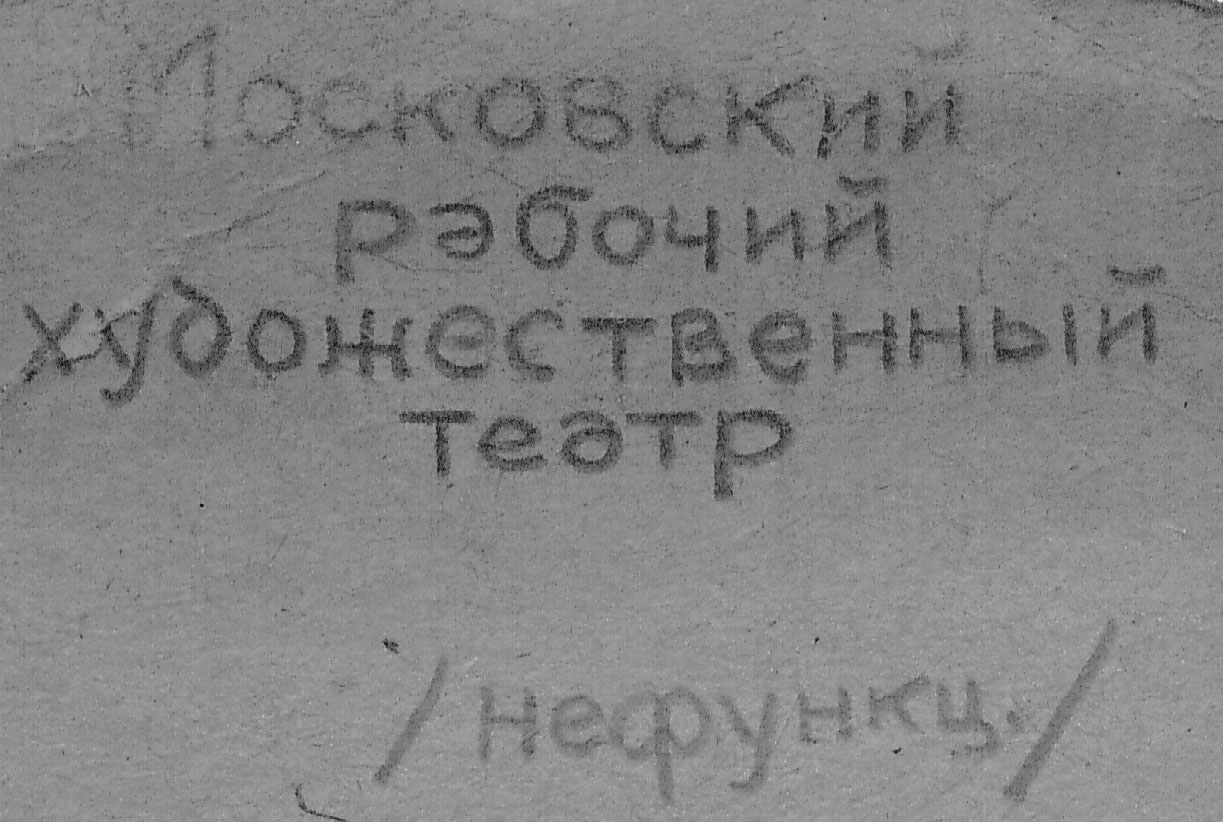 Московский
рабочий
художественный
театр
/нефункц./